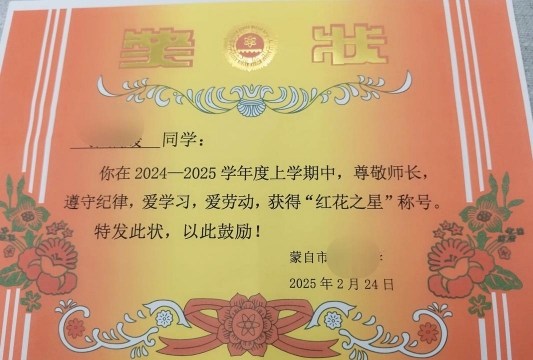 奖状
同学：
你在2024—2025学年度上学期中，尊敬师长，
遵守纪律，爱学习，爱劳动，获得“红花之星”称号。
特发此状，以此鼓励！
蒙自市
2025年2月24日